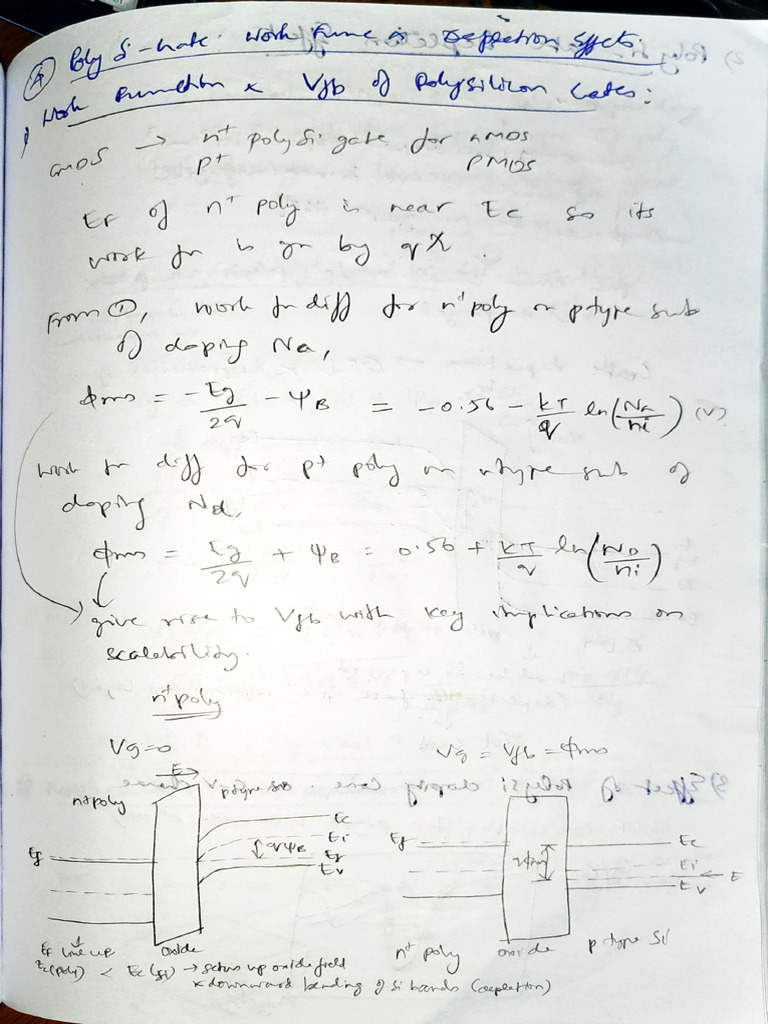 ④ Poly Si-Gate Work Funcn & Depletion Effects:
1) Work Function & Vfb of Polysilicon Gates:
CMOS → n⁺ poly Si gate for nMOS
p⁺ PMOS
EF of n⁺ poly is near Ec so its
work fn is gn by qχ.
From ①, work fn diff for n⁺ poly on p type sub
of doping Na,
ϕms = -Eg/2q - ψB = -0.56 - kT/q ln(Na/ni) (V)
Work fn diff for p⁺ poly on n type sub of
doping Nd,
ϕms = Eg/2q + ψB = 0.56 + kT/q ln(ND/ni)
give rise to Vfb with key implications on
scalability.
n⁺ poly
Vg=0
Vg = Vfb = ϕms
E →
n⁺ poly
p type
Ec
Ei
Ef
Ev
qψB
Ef
Ef
Ec
Ei
Ev
E
Ef line up
oxide
n⁺ poly oxide p type Si
Ec(poly) < Ec(Si) → sets up oxide field
& downward bending of Si bands (depletion)